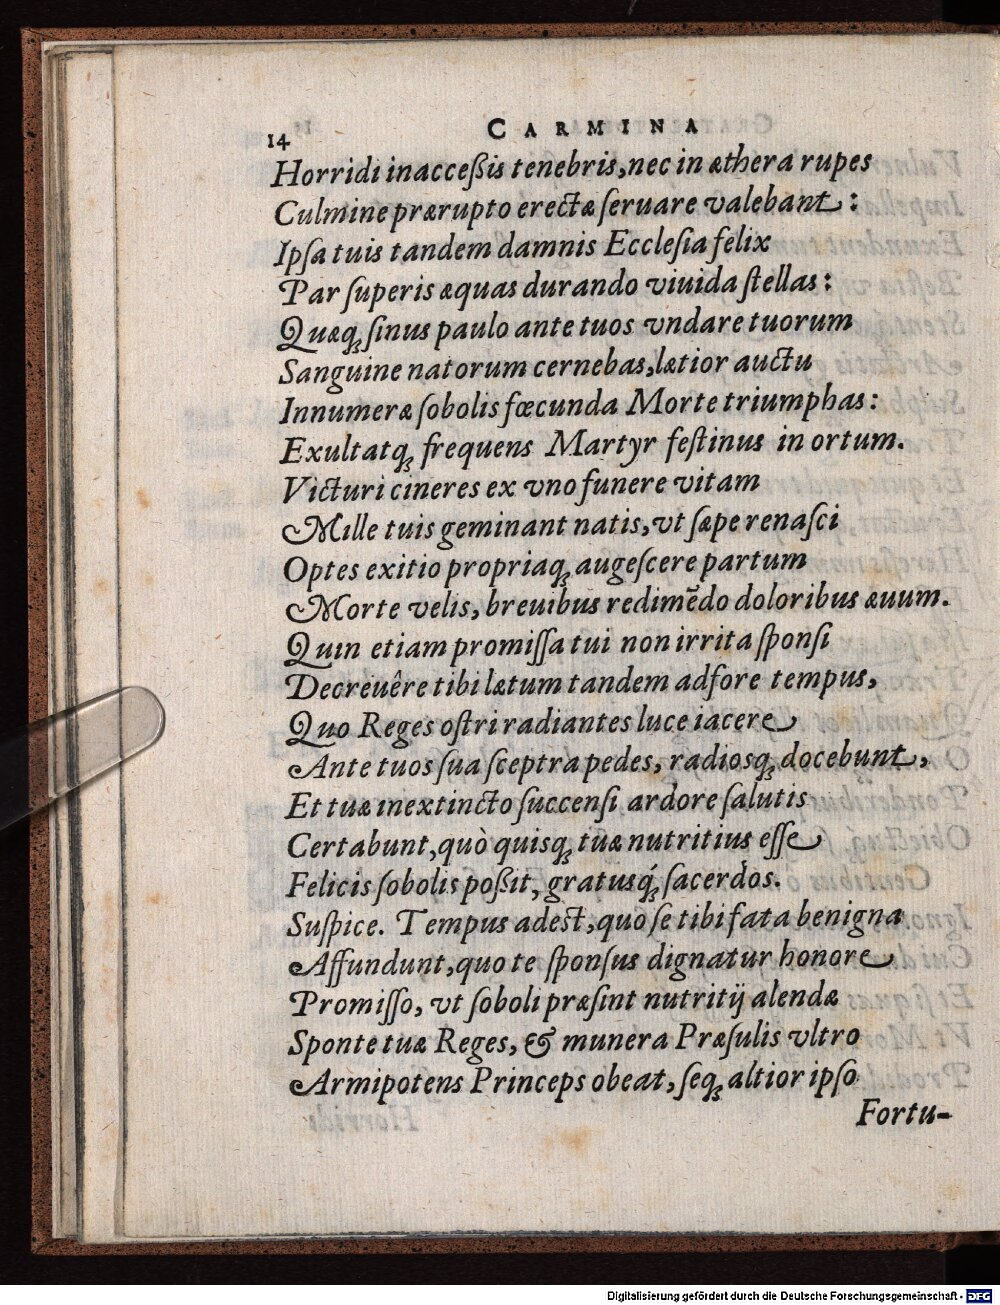 14 CARMINA
Horridi inacceßis tenebris, nec in æthera rupes
Culmine prærupto erectæ ſeruare valebant:
Ipſa tuis tandem damnis Eccleſia felix
Par ſuperis æquas durando viuida ſtellas:
Quæq; ſinus paulo ante tuos vndare tuorum
Sanguine natorum cernebas, lætior auctu
Innumeræ ſobolis fœcunda Morte triumphas:
Exultatq; frequens Martyr feſtinus in ortum.
Victuri cineres ex vno funere vitam
Mille tuis geminant natis, vt ſæpe renaſci
Optes exitio propriaq; augeſcere partum
Morte velis, breuibus redimēdo doloribus æuum.
Quin etiam promiſſa tui non irrita ſponſi
Decreuêre tibi lætum tandem adfore tempus,
Quo Reges oſtri radiantes luce iacere
Ante tuos ſua ſceptra pedes, radiosq; docebunt,
Et tuæ inextincto ſuccenſi ardore ſalutis
Certabunt, quò quisq; tuæ nutritius eſſe
Felicis ſobolis poßit, gratusq́; ſacerdos.
Suſpice. Tempus adest, quo ſe tibi fata benigna
Affundunt, quo te ſponſus dignatur honore
Promiſſo, vt ſoboli præſint nutritij alendæ
Sponte tuæ Reges, & munera Præſulis vltro
Armipotens Princeps obeat, ſeq; altior ipſo
Fortu-
Digitalisierung gefördert durch die Deutsche Forschungsgemeinschaft - DFG